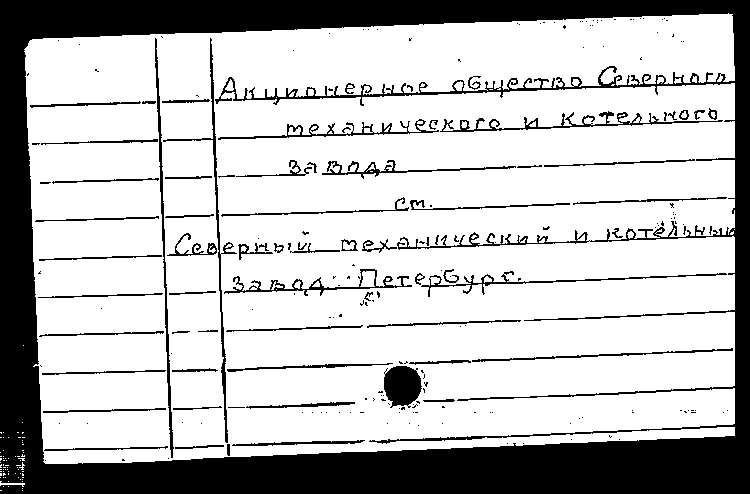 Акционерное общество Северного
механического и котельного
завода
см.
Северный механический и котельный
завод. Петербург.